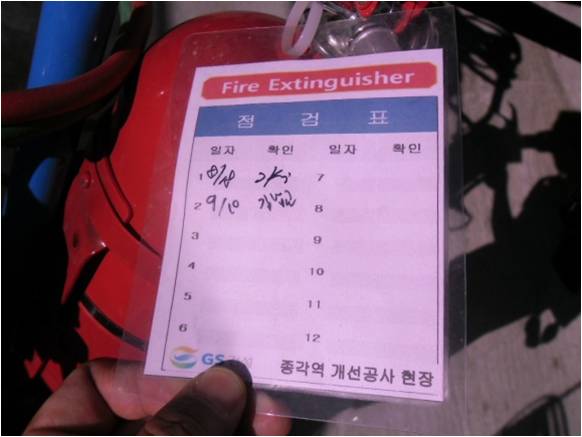 Fire Extinguisher
점 검 표
일자 확인 일자 확인
1 8/8 7
2 9/10 8
3 9
4 10
5 11
6 12
GS건설 종각역 개선공사 현장